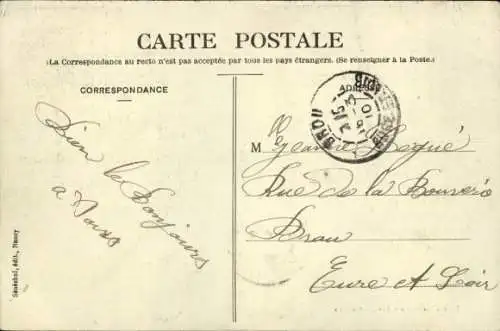 CARTE POSTALE
(La Correspondance au recto n'est pas acceptée par tous les pays étrangers. (Se renseigner à la Poste.)
CORRESPONDANCE
Bien le Bonjour
a Vous
BROU
M Jeanne
Rue de la
Brou
Eure et Loir
Sénéchal, édit., Nancy